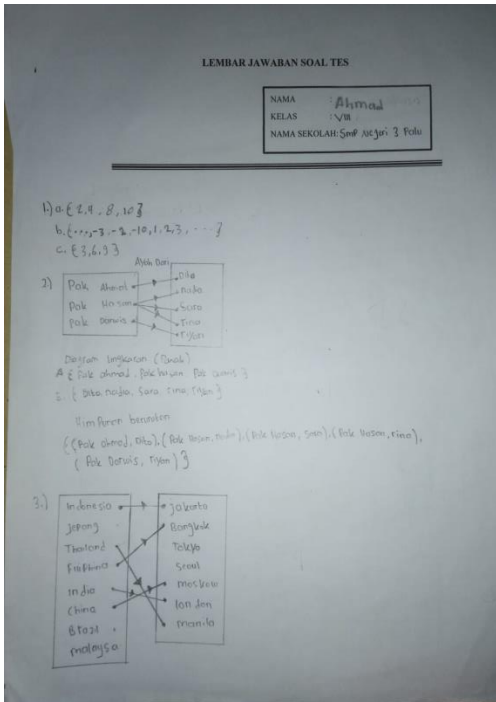 LEMBAR JAWABAN SOAL TES
NAMA : Ahmad
KELAS : VIII
NAMA SEKOLAH: Smp Negeri 3 Palu
1.) a. {2,4, 8, 10}
b. {..., -3, -2, -10, 1, 2, 3, ....}
c. {3,6,9}
2) Ayah Dari
Pak Ahmad
Pak Hasan
Pak Darwis
Dita
Nada
Sara
Tina
Tigan
Diagram lingkaran
A {Pak ahmad, Pak hasan Pak darwis}
{Dita, nada, Sara, Tina, Tigan}
Himpunan berurutan
{(Pak ahmad, Dita), (Pak Hasan, nada), (Pak Hasan, Sara), (Pak Hasan, Tina),
(Pak Darwis, Tigan)}
3.)
Indonesia
Jepang
Thailand
Filiphina
India
China
Brazil
malaysa
Jakarta
Bangkok
Tokyo
Seoul
moskow
london
manila